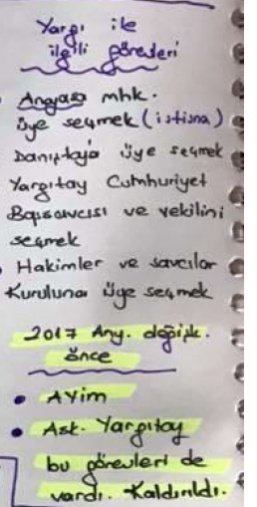 Yargı ile
ilgili görevleri
• Anayasa mhk.
üye seçmek (istisna)
Danıştay'a üye seçmek
Yargıtay Cumhuriyet
Başsavcısı ve vekilini
seçmek
• Hakimler ve savcılar
Kuruluna üye seçmek
2017 Any. değişk.
önce
• AYİM
• Ask. Yargıtay
bu görevleri de
vardı. Kaldırıldı.